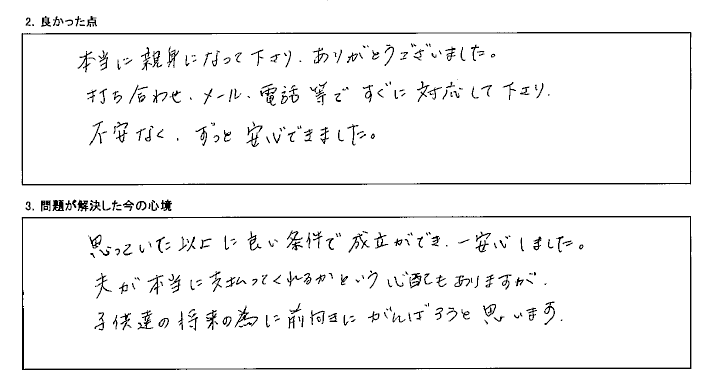 2. 良かった点
本当に親身になって下さり、ありがとうございました。
打ち合わせ、メール、電話等ですぐに対応して下さり、
不安なく、ずっと安心できました。
3. 問題が解決した今の心境
思っていた以上に良い条件で成立ができ、一安心しました。
夫が本当に支払ってくれるかという心配もありますが、
子供達の将来の為に前向きにがんばろうと思います。